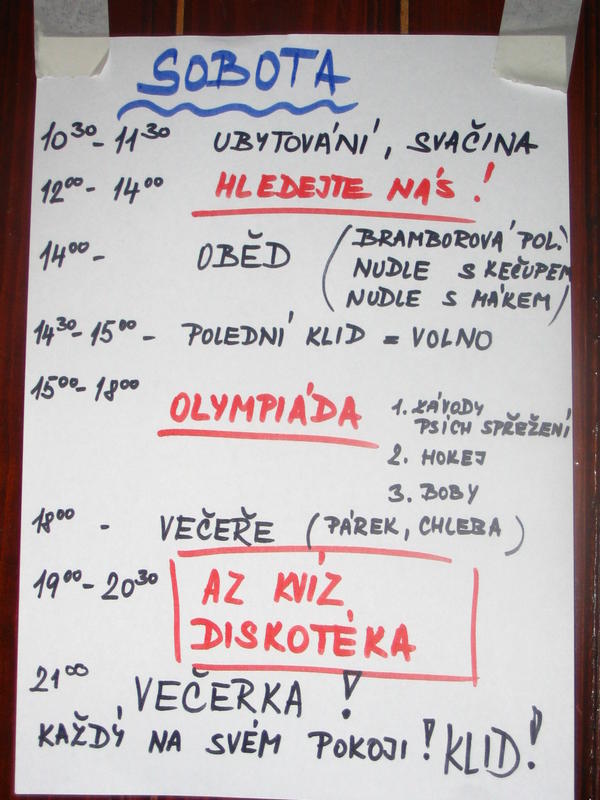 SOBOTA
10³⁰- 11³⁰ UBYTOVÁNÍ, SVAČINA
12⁰⁰- 14⁰⁰ HLEDEJTE NÁS!
14⁰⁰- OBĚD (BRAMBOROVÁ POL.
NUDLE S KEČUPEM
NUDLE S MÁKEM)
14³⁰-15⁰⁰- POLEDNÍ KLID = VOLNO
15⁰⁰- 18⁰⁰ OLYMPIÁDA 1. ZÁVODY
PSÍCH SPŘEŽENÍ
2. HOKEJ
3. BOBY
18⁰⁰ - VEČEŘE (PÁREK, CHLEBA)
19⁰⁰- 20³⁰ AZ KVÍZ
DISKOTÉKA
21⁰⁰ VEČERKA!
KAŽDÝ NA SVÉM POKOJI! KLID!